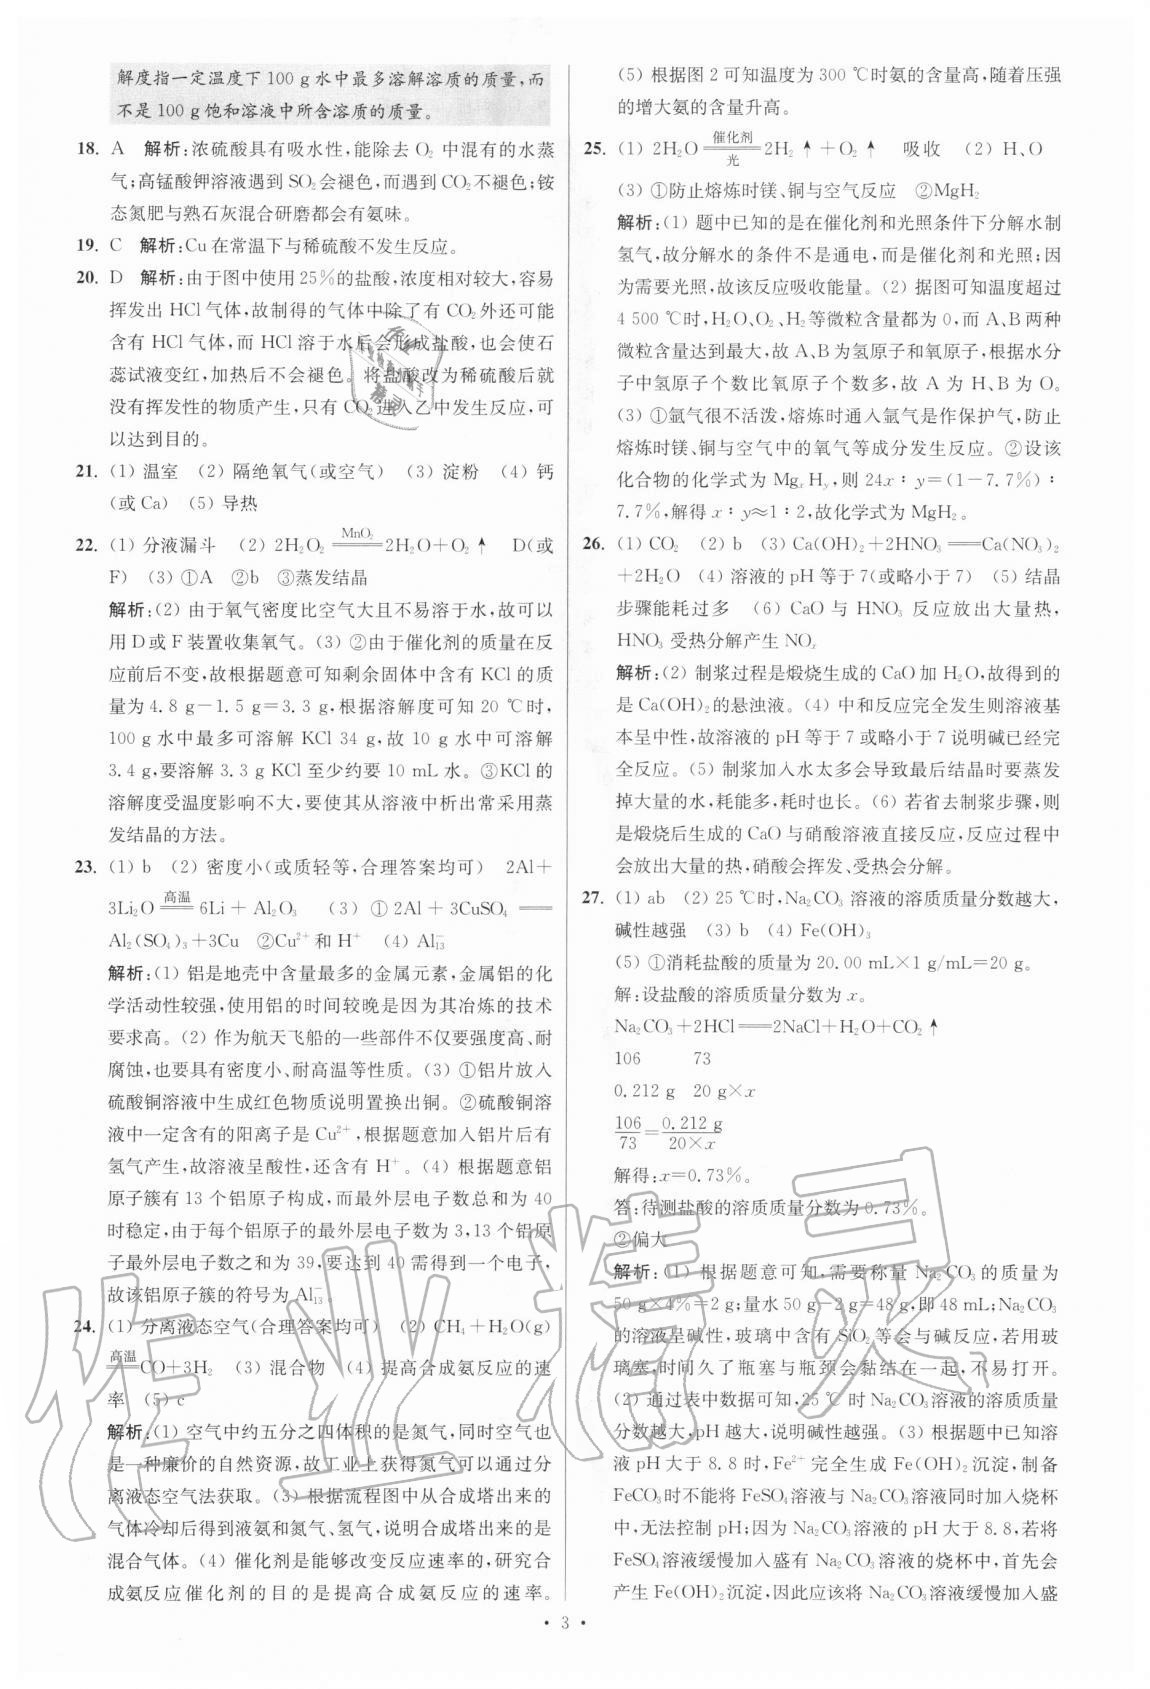 解度指一定温度下100 g水中最多溶解溶质的质量,而
不是100 g饱和溶液中所含溶质的质量。
18. A 解析:浓硫酸具有吸水性,能除去O₂中混有的水蒸
气;高锰酸钾溶液遇到SO₂会褪色,而遇到CO₂不褪色;铵
态氮肥与熟石灰混合研磨都会有氨味。
19. C 解析:Cu在常温下与稀硫酸不发生反应。
20. D 解析:由于图中使用25%的盐酸,浓度相对较大,容易
挥发出HCl气体,故制得的气体中除了有CO₂外还可能
含有HCl气体,而HCl溶于水后会形成盐酸,也会使石
蕊试液变红,加热后不会褪色。将盐酸改为稀硫酸后就
没有挥发性的物质产生,只有CO₂进入乙中发生反应,可
以达到目的。
21. (1) 温室 (2) 隔绝氧气(或空气) (3) 淀粉 (4) 钙
(或Ca) (5) 导热
22. (1) 分液漏斗 (2) 2H₂O₂ ══MnO₂══ 2H₂O+O₂↑ D(或
F) (3) ①A ②b ③蒸发结晶
解析:(2) 由于氧气密度比空气大且不易溶于水,故可以
用D或F装置收集氧气。(3) ②由于催化剂的质量在反
应前后不变,故根据题意可知剩余固体中含有KCl的质
量为4.8 g-1.5 g=3.3 g,根据溶解度可知20 ℃时,
100 g水中最多可溶解KCl 34 g,故10 g水中可溶解
3.4 g,要溶解3.3 g KCl至少约要10 mL水。③KCl的
溶解度受温度影响不大,要使其从溶液中析出常采用蒸
发结晶的方法。
23. (1) b (2) 密度小(或质轻等,合理答案均可) 2Al+
3Li₂O ══高温══ 6Li+Al₂O₃ (3) ① 2Al+3CuSO₄ ══
Al₂(SO₄)₃+3Cu ②Cu²⁺和H⁺ (4) Al₁₃⁻
解析:(1) 铝是地壳中含量最多的金属元素,金属铝的化
学活动性较强,使用铝的时间较晚是因为其冶炼的技术
要求高。(2) 作为航天飞船的一些部件不仅要强度高、耐
腐蚀,也要具有密度小、耐高温等性质。(3) ①铝片放入
硫酸铜溶液中生成红色物质说明置换出铜。②硫酸铜溶
液中一定含有的阳离子是Cu²⁺,根据题意加入铝片后有
氢气产生,故溶液呈酸性,还含有H⁺。(4) 根据题意铝
原子簇有13个铝原子构成,而最外层电子数总和为40
时稳定,由于每个铝原子的最外层电子数为3,13个铝原
子最外层电子数之和为39,要达到40需得到一个电子,
故该铝原子簇的符号为Al₁₃⁻。
24. (1) 分离液态空气(合理答案均可) (2) CH₄+H₂O(g)
══高温══CO+3H₂ (3) 混合物 (4) 提高合成氨反应的速
率 (5) c
解析:(1) 空气中约五分之四体积的是氮气,同时空气也
是一种廉价的自然资源,故工业上获得氮气可以通过分
离液态空气法获取。(3) 根据流程图中从合成塔出来的
气体冷却后得到液氨和氮气、氢气,说明合成塔出来的是
混合气体。(4) 催化剂是能够改变反应速率的,研究合
成氨反应催化剂的目的是提高合成氨反应的速率。
(5) 根据图2可知温度为300 ℃时氨的含量高,随着压强
的增大氨的含量升高。
25. (1) 2H₂O ══催化剂/光══ 2H₂↑+O₂↑ 吸收 (2) H、O
(3) ①防止熔炼时镁、铜与空气反应 ②MgH₂
解析:(1) 题中已知的是在催化剂和光照条件下分解水制
氢气,故分解水的条件不是通电,而是催化剂和光照;因
为需要光照,故该反应吸收能量。(2) 据图可知温度超过
4 500 ℃时,H₂O、O₂、H₂等微粒含量都为0,而A、B两种
微粒含量达到最大,故A、B为氢原子和氧原子,根据水分
子中氢原子个数比氧原子个数多,故A为H、B为O。
(3) ①氩气很不活泼,熔炼时通入氩气是作保护气,防止
熔炼时镁、铜与空气中的氧气等成分发生反应。②设该
化合物的化学式为MgₓHᵧ,则24x∶y=(1-7.7%)∶
7.7%,解得x∶y≈1∶2,故化学式为MgH₂。
26. (1) CO₂ (2) b (3) Ca(OH)₂+2HNO₃══Ca(NO₃)₂
+2H₂O (4) 溶液的pH等于7(或略小于7) (5) 结晶
步骤能耗过多 (6) CaO与HNO₃反应放出大量热,
HNO₃受热分解产生NOₓ
解析:(2) 制浆过程是煅烧生成的CaO加H₂O,故得到的
是Ca(OH)₂的悬浊液。(4) 中和反应完全发生则溶液基
本呈中性,故溶液的pH等于7或略小于7说明碱已经完
全反应。(5) 制浆加入水太多会导致最后结晶时要蒸发
掉大量的水,耗能多,耗时也长。(6) 若省去制浆步骤,则
是煅烧后生成的CaO与硝酸溶液直接反应,反应过程中
会放出大量的热,硝酸会挥发、受热会分解。
27. (1) ab (2) 25 ℃时,Na₂CO₃溶液的溶质质量分数越大,
碱性越强 (3) b (4) Fe(OH)₃
(5) ①消耗盐酸的质量为20.00 mL×1 g/mL=20 g。
解:设盐酸的溶质质量分数为x。
Na₂CO₃+2HCl══2NaCl+H₂O+CO₂↑
106 73
0.212 g 20 g×x
106/73=0.212 g/20×x
解得:x=0.73%。
答:待测盐酸的溶质质量分数为0.73%。
②偏大
解析:(1) 根据题意可知,需要称量Na₂CO₃的质量为
50 g×4%=2 g;量水50 g-2 g=48 g,即48 mL;Na₂CO₃
的溶液呈碱性,玻璃中含有SiO₂等会与碱反应,若用玻
璃塞,时间久了瓶塞与瓶颈会黏结在一起,不易打开。
(2) 通过表中数据可知,25 ℃时Na₂CO₃溶液的溶质质量
分数越大,pH越大,说明碱性越强。(3) 根据题中已知溶
液pH大于8.8时,Fe²⁺完全生成Fe(OH)₂沉淀,制备
FeCO₃时不能将FeSO₄溶液与Na₂CO₃溶液同时加入烧杯
中,无法控制pH;因为Na₂CO₃溶液的pH大于8.8,若将
FeSO₄溶液缓慢加入盛有Na₂CO₃溶液的烧杯中,首先会
产生Fe(OH)₂沉淀,因此应该将Na₂CO₃溶液缓慢加入盛
• 3 •
作业精灵